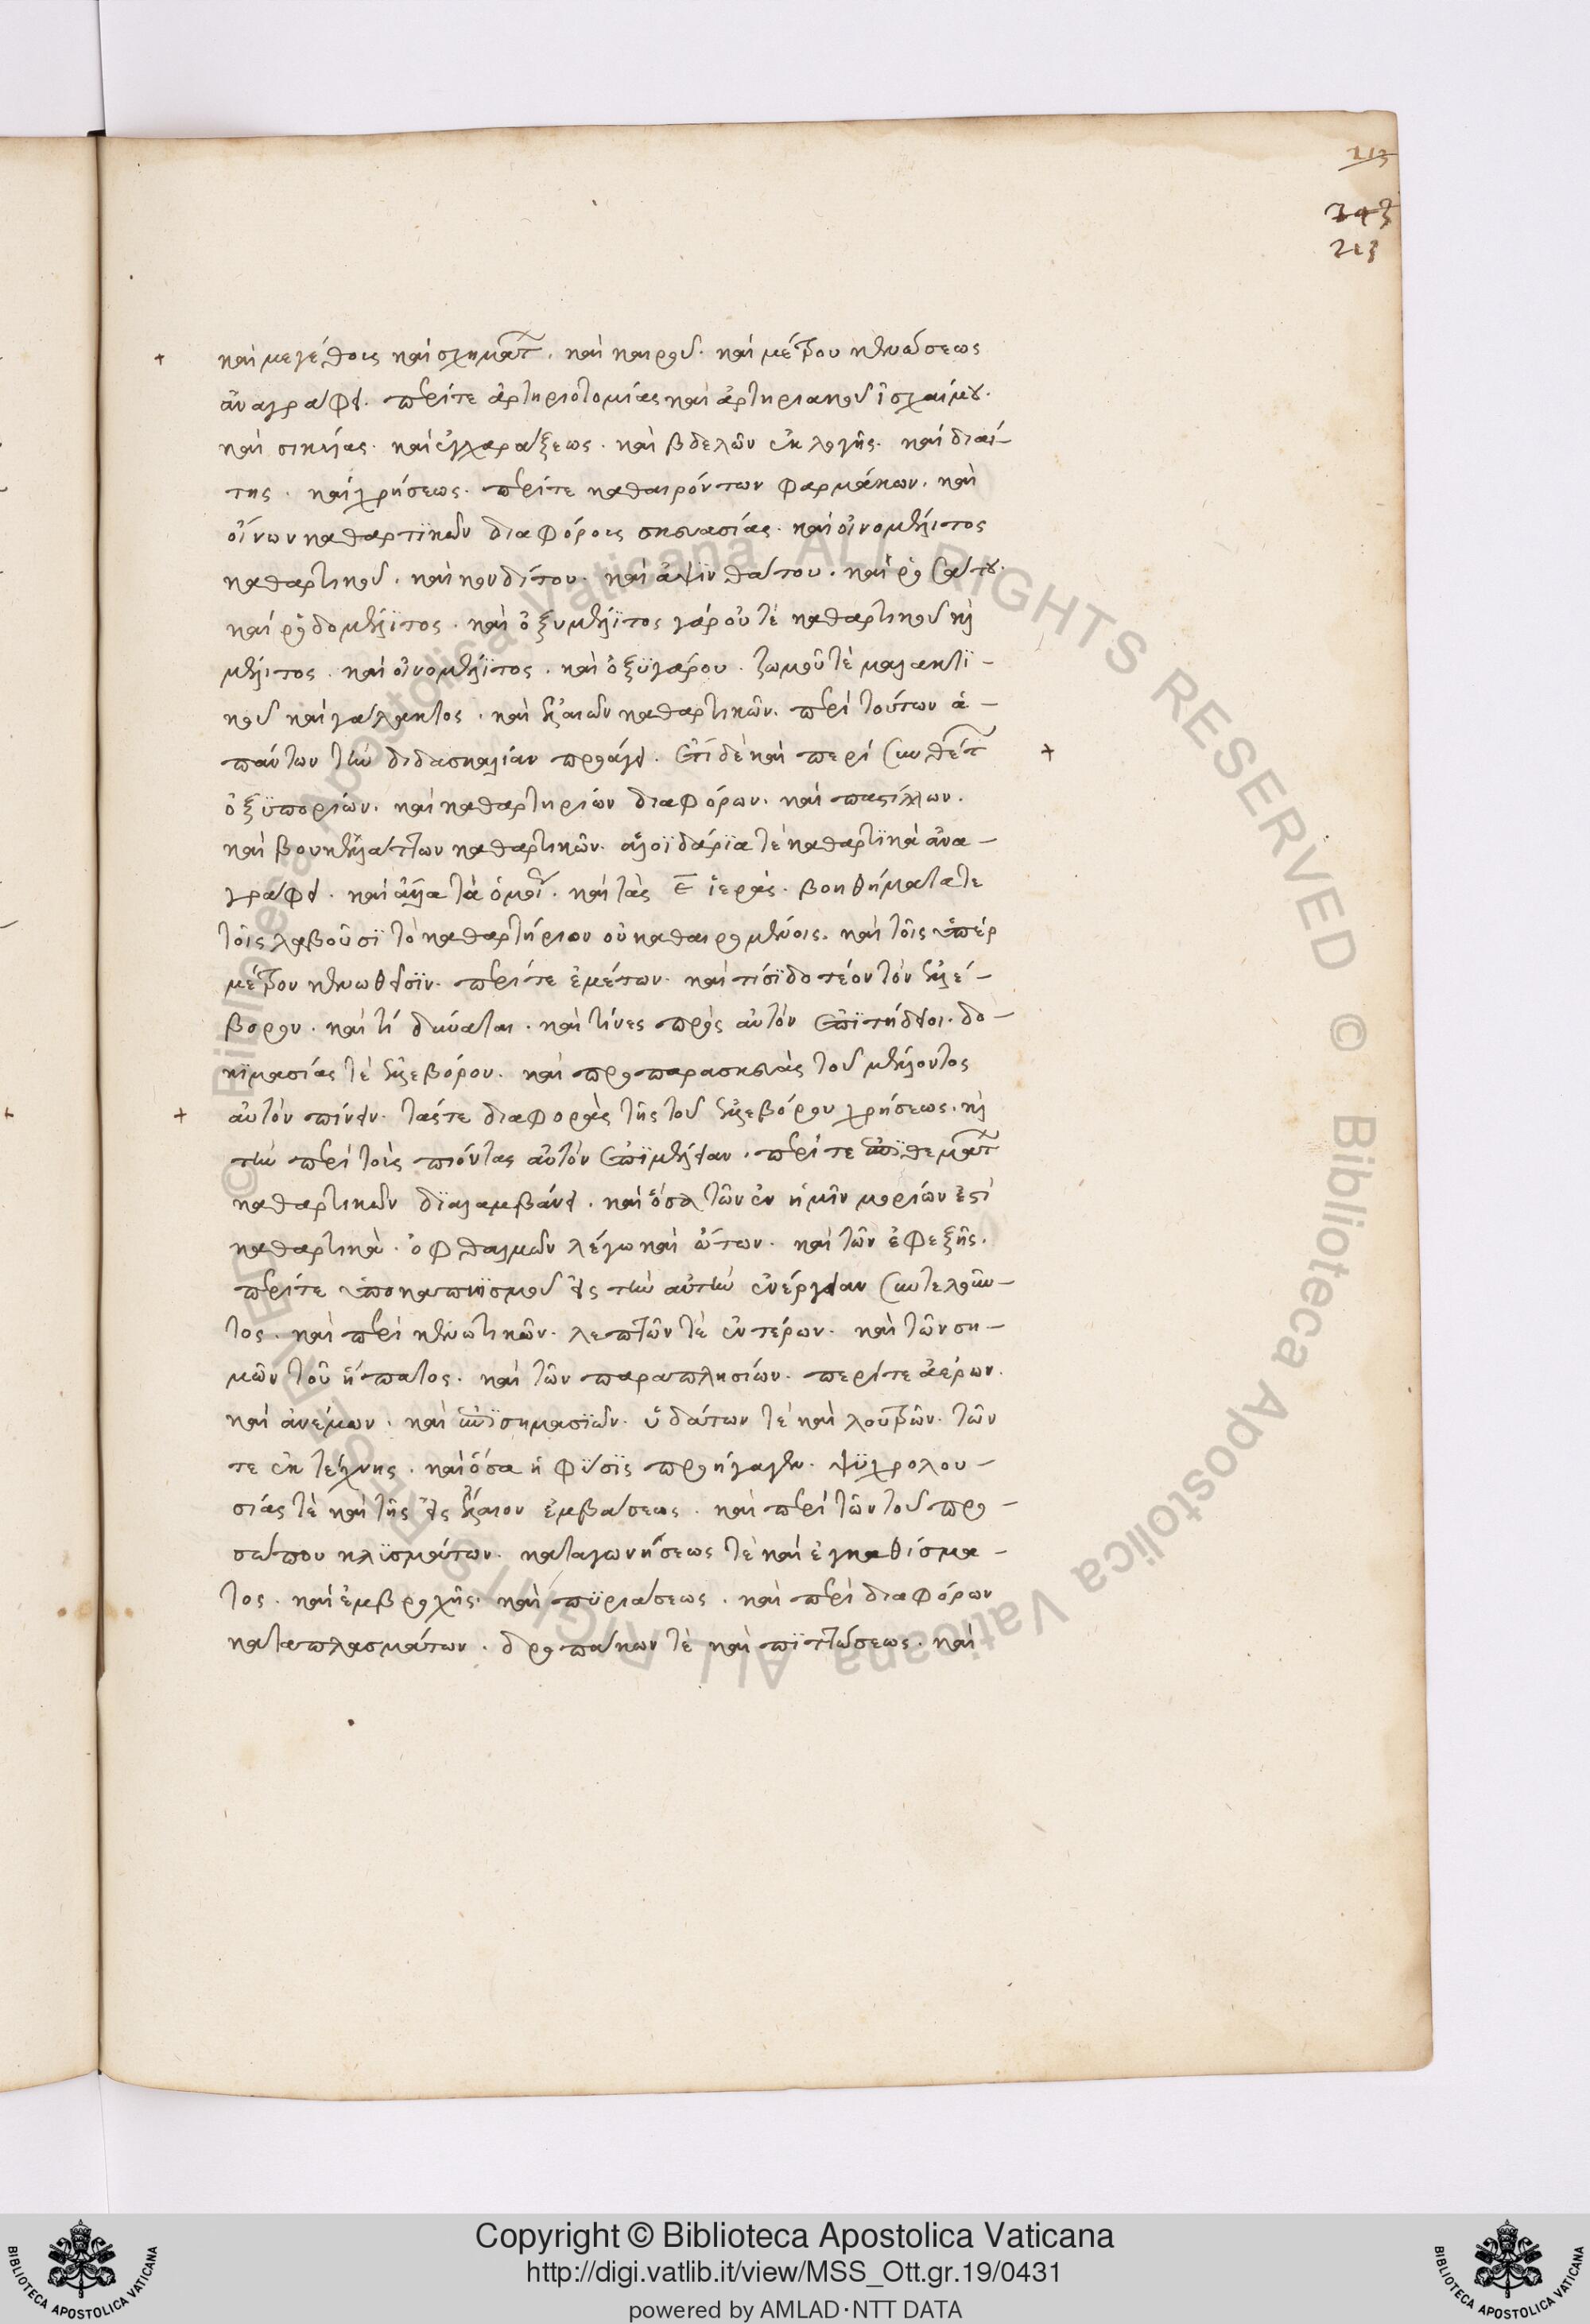 213
243
213
καὶ μεγέθους καὶ σχημάτ. καὶ καιροῦ. καὶ μέτρου κενώσεως
ἀναγράφει. περί τε ἀρτηριοτομίας καὶ ἀρτηριακοῦ ἰσχαίμου.
καὶ σικύας. καὶ ἐγχαράξεως. καὶ βδελῶν ἐκλογῆς. καὶ διαί-
της. καὶ χρήσεως. περί τε καθαιρόντων φαρμάκων. καὶ
οἴνων καθαρτϊκῶν διαφόρους σκευασίας. καὶ οἰνομέλιτος
καθαρτικοῦ. καὶ κονδίτου. καὶ ἀψϊνθάτου. καὶ ῥοσάτου.
καὶ ῥοδομέλϊτος. καὶ ὀξυμέλϊτος γάρου τὲ καθαρτικοῦ κὶ
μέλιτος. καὶ οἰνομέλϊτος. καὶ ὀξϋγάρου. ζωμοῦ τὲ μαλακτϊ-
κοῦ καὶ γάλακτος. καὶ ἐλαιῶν καθαρτικῶν. περὶ τούτων ἁ-
πάντων τὴν διδασκαλίαν προάγει. ἔτι δὲ καὶ περὶ συνθέτ
ὀξϋπορίων. καὶ καθαρτηρίων διαφόρων. καὶ παστίλλων.
καὶ βουκελλάττων καθαρτικῶν. ἁλοϊδάρϊα τὲ καθαρτϊκὰ ἀνα-
γράφει. καὶ ἄλλα τὰ ὅμοι. καὶ τὰς ε ἱεράς. βοηθήματα τε
τοῖς λαβοῦσϊ τὸ καθαρτήριον οὐ καθαιρομένοις. καὶ τοῖς ὑπὲρ
μέτρον κενωθεῖσϊν. περί τε ἐμέτων. καὶ τίσϊ δοτέον τὸν ἐλέ-
βορον. καὶ τί δύναται. καὶ τίνες πρὸς αὐτὸν ἐπϊτήδειοι. δο-
κϊμασίας τὲ ἐλεβόρου. καὶ προπαρασκευὰς τοῦ μέλλοντος
αὐτὸν πίνειν. τάς τε διαφορὰς τῆς τοῦ ἐλεβόρου χρήσεως. κὶ
τὴν περὶ τοὺς πιόντας αὐτὸν ἐπϊμέλειαν. περί τε ἐπϊθεμάτ
καθαρτικῶν δϊαλαμβάνει. καὶ ὅσα τῶν ἐν ἡμῖν μορίων ἐστὶ
καθαρτικὰ. ὀφθαλμῶν λέγω καὶ ὤτων. καὶ τῶν ἐφεξῆς.
περί τε ὑποκαπνϊσμοῦ εἰς τὴν αὐτὴν ἐνέργειαν συντελοῦν-
τος. καὶ περὶ κενωτικῶν. λεπτῶν τὲ ἐντέρων. καὶ τῶν ση-
μῶν τοῦ ἥπατος. καὶ τῶν παραπλησίων. περί τε ἀέρων.
καὶ ἀνέμων. καὶ ἐπϊσημασϊῶν. ὑδάτων τὲ καὶ λουτρῶν. τῶν
τε ἐκ τέχνης. καὶ ὅσα ἡ φύσϊς προήγαγεν. ψϋχρολου-
σίας τὲ καὶ τῆς εἰς ἔλαιον ἐμβάσεως. καὶ περὶ τῶν τοῦ προ-
σώπου κλϋσμάτων. καταγωνήσεως τὲ καὶ ἐγκαθίσμα-
τος. καὶ ἐμβροχῆς. καὶ πϋριάσεως. καὶ περὶ διαφόρων
καταπλασμάτων. δροπάκων τὲ καὶ πϊττώσεως. καὶ
Copyright © Biblioteca Apostolica Vaticana
http://digi.vatlib.it/view/MSS_Ott.gr.19/0431
powered by AMLAD·NTT DATA